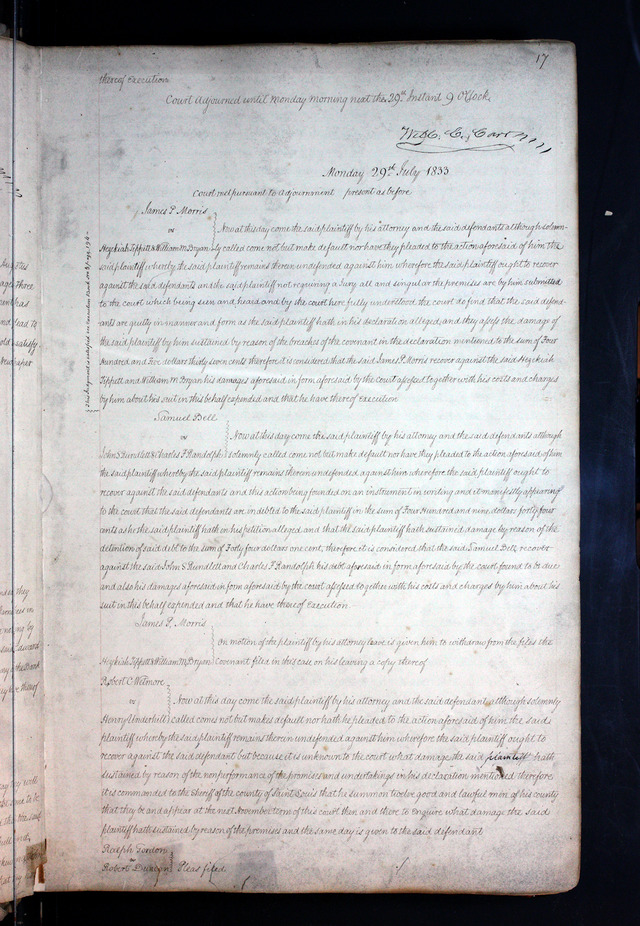 17
thereof Execution
Court Adjourned until Monday morning next the 29th Instant 9 O'Clock.
Wm C. Carr
Monday 29th July 1833
Court met pursuant to Adjournment present as before
James P. Morris
vs Now at this day come the said plaintiff by his attorney and the said defendants although solemn-
Hezekiah Tippett & William M. Bryan ly called come not but make default nor have they pleaded to the action aforesaid of him the
said plaintiff whereby the said plaintiff remains therein undefended against him wherefore the said plaintiff ought to recover
against the said defendants and the said plaintiff not requiring a Jury all and singular the premises are by him submitted
to the court which being seen and heard and by the court here fully understood the court do find that the said defend-
ants are guilty in manner and form as the said plaintiff hath in his declaration alleged, and they assess the damage of
the said plaintiff by him sustained by reason of the breaches of the covenant in the declaration mentioned to the sum of Four
Hundred and Five dollars thirty seven cents therefore it is considered that the said James P. Morris recover against the said Hezekiah
Tippett and William M. Bryan his damages aforesaid in form aforesaid by the court assessed together with his costs and charges
by him about his suit in this behalf expended and that he have thereof Execution
Samuel Bell
vs Now at this day come the said plaintiff by his attorney and the said defendants although
John S Rundlett & Charles F Randolph solemnly called come not but make default nor have they pleaded to the action aforesaid of him
the said plaintiff whereby the said plaintiff remains therein undefended against him wherefore the said plaintiff ought to
recover against the said defendants and this action being founded on an instrument in writing and it manifestly appearing
to the court that the said defendants are indebted to the said plaintiff in the sum of Four Hundred and nine dollars forty four
cents as he the said plaintiff hath in his petition alleged and that the said plaintiff hath sustained damage by reason of the
detention of said debt to the sum of Forty four dollars one cent, therefore it is considered that the said Samuel Bell recover
against the said John S Rundlett and Charles F Randolph his debt aforesaid in form aforesaid by the court found to be due
and also his damages aforesaid in form aforesaid by the court assessed together with his costs and charges by him about his
suit in this behalf expended and that he have thereof Execution.
James P. Morris
On motion of the plaintiff by his attorney leave is given him to withdraw from the files the
Hezekiah Tippett & William M. Bryan covenant filed in this case on his leaving a copy thereof
Robert C. Wetmore
vs Now at this day come the said plaintiff by his attorney and the said defendant although solemnly
Henry Underhill called comes not but makes default nor hath he pleaded to the action aforesaid of him the said
plaintiff whereby the said plaintiff remains therein undefended against him wherefore the said plaintiff ought to
recover against the said defendant but because it is unknown to the court what damage the said plaintiff hath
sustained by reason of the nonperformance of the promises and undertakings in his declaration mentioned therefore
it is commanded to the Sheriff of the county of Saint Louis that he summon twelve good and lawful men of his county
that they be and appear at the next November term of this court then and there to enquire what damage the said
plaintiff hath sustained by reason of the premises and the same day is given to the said defendant
Ralph Gordon
vs
Robert Duncan Pleas filed